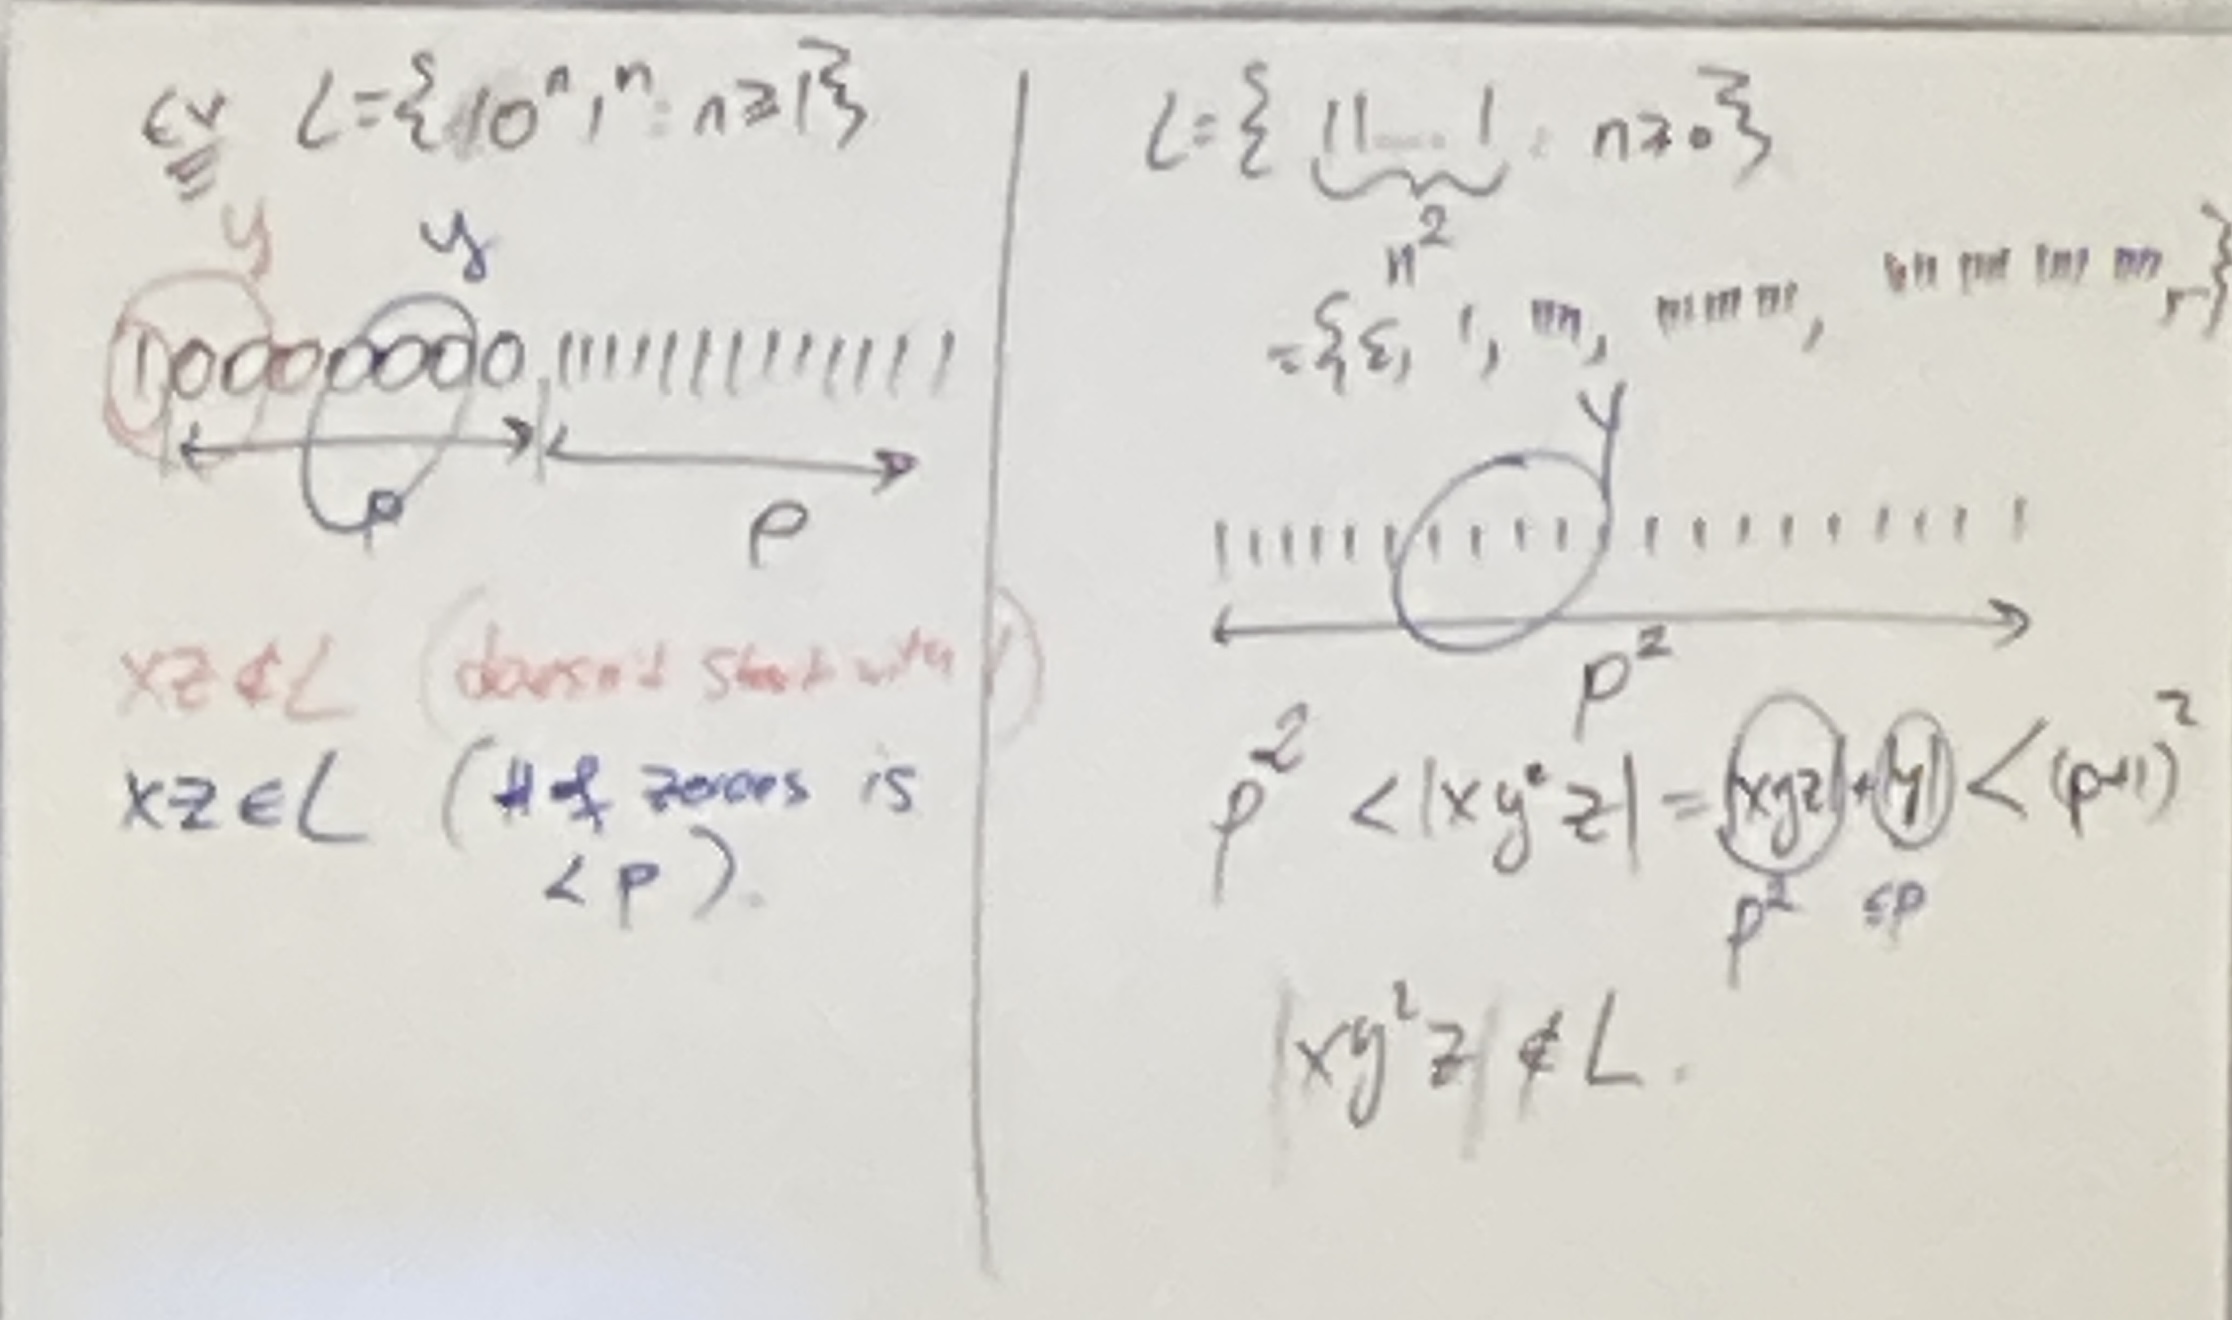 ex L={10ⁿ1ⁿ: n≥1}
y y
100000000 1111111111111
p p
xz∉L (doesn't start with 1)
xz∈L (# of zeroes is
<p).
L={11...1 : n≥0}
n²
={ε, 1, 1111, 111111111, 1111111111111111, ...}
y
p²
p² < |xy²z| = |xyz| + |y| < (p+1)²
p² ≤p
|xy²z| ∉ L.